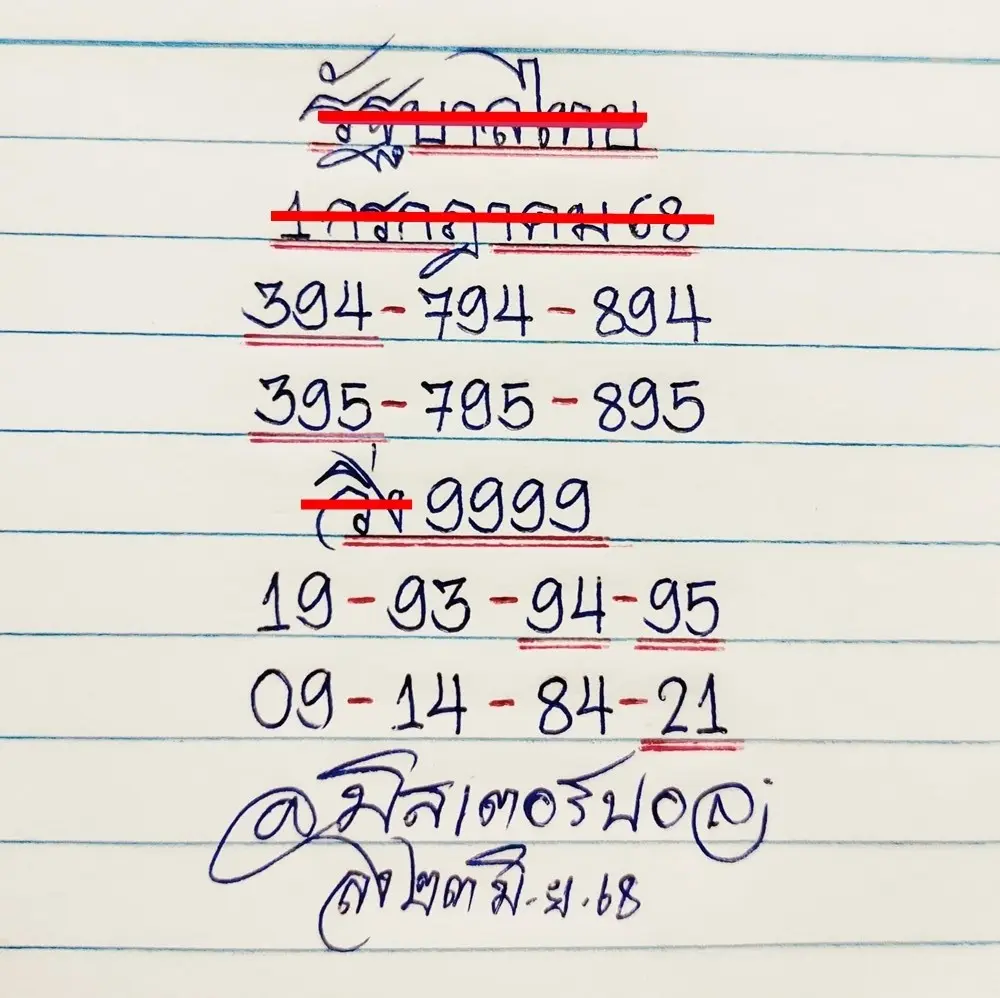 รัฐบาลไทย
1 กรกฎาคม 68
394-794-894
395-795-895
วิ่ง 9999
19-93-94-95
09-14-84-21
@มิสเตอร์ปอลล์
ลง ๒๓ มิ.ย.68